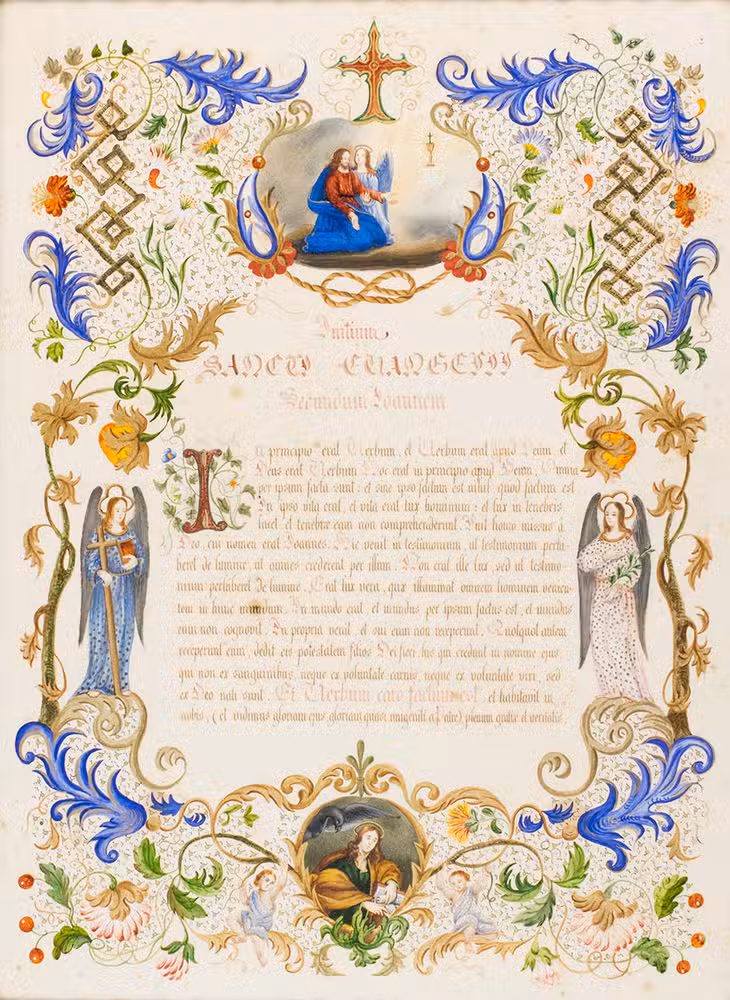 Initium
SANCTI EVANGELII
Secundum Joannem
In principio erat Verbum, et Verbum erat apud Deum, et
Deus erat Verbum. Hoc erat in principio apud Deum. Omnia
per ipsum facta sunt: et sine ipso factum est nihil quod factum est
In ipso vita erat, et vita erat lux hominum: et lux in tenebris
lucet, et tenebræ eam non comprehenderunt. Fuit homo missus a
Deo, cui nomen erat Joannes. Hic venit in testimonium, ut testimonium perhi
beret de lumine, ut omnes crederent per illum. Non erat ille lux, sed ut testimo-
nium perhiberet de lumine. Erat lux vera, quæ illuminat omnem hominem venien-
tem in hunc mundum. In mundo erat, et mundus per ipsum factus est, et mundus
eum non cognovit. In propria venit, et sui eum non receperunt. Quotquot autem
receperunt eum, dedit eis potestatem filios Dei fieri, his qui credunt in nomine ejus,
qui non ex sanguinibus, neque ex voluntate carnis, neque ex voluntate viri, sed
ex Deo nati sunt. Et Verbum caro factum est, et habitavit in
nobis, (et vidimus gloriam ejus gloriam quasi unigeniti a Patre) plenum gratiæ et veritatis.